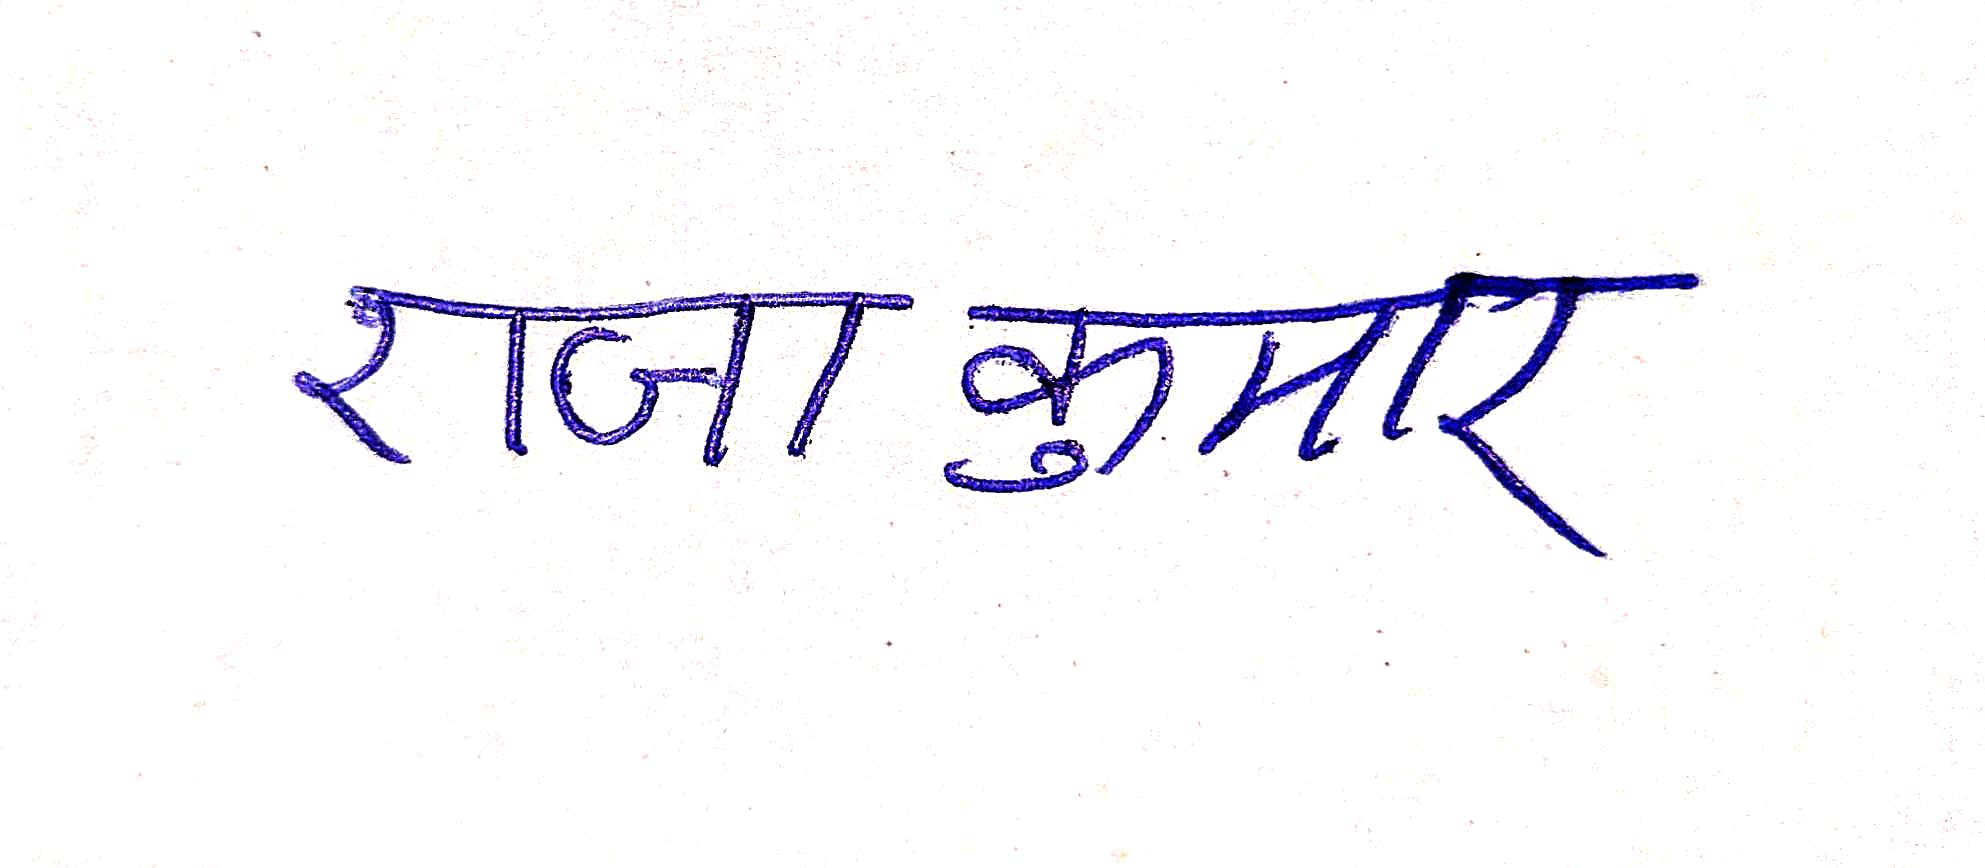 राजा कुमार